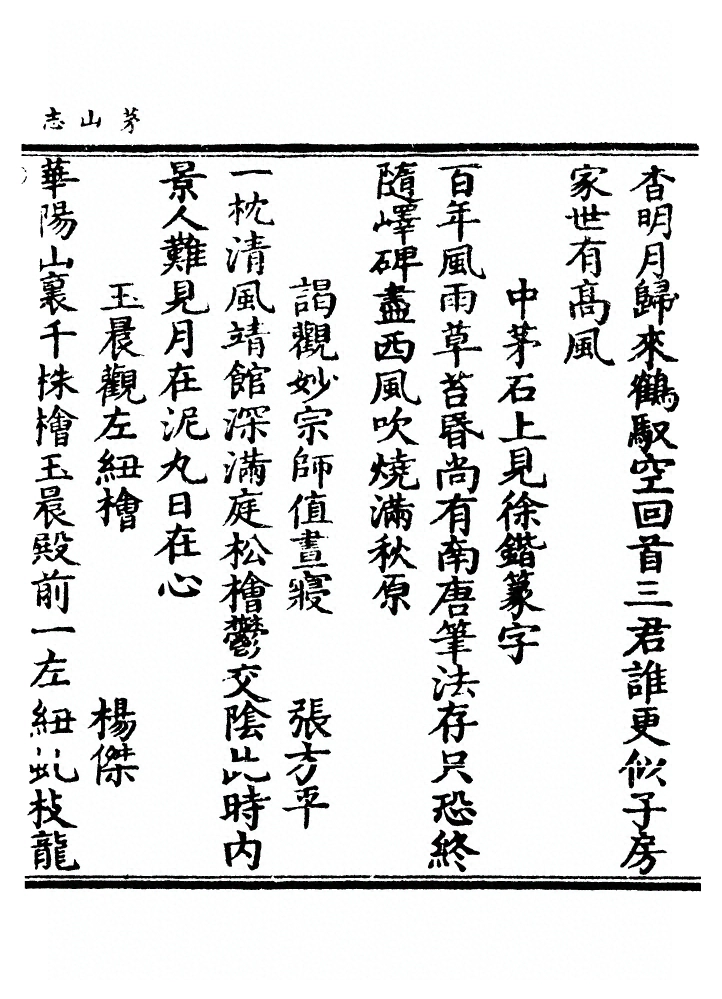 茅山志
杳明月歸來鶴馭空回首三君誰更似子房
家世有髙風
中茅石上見徐鍇篆字
百年風雨草苔昬尚有南唐筆法存只恐終
隨嶧碑盡西風吹燒滿秋原
謁觀妙宗師值晝寢 張方平
一枕清風靖館深滿庭松檜鬱交陰此時内
景人難見月在泥丸日在心
玉晨觀左紐檜 楊傑
華陽山裏千株檜玉晨殿前一左紐虬枝龍